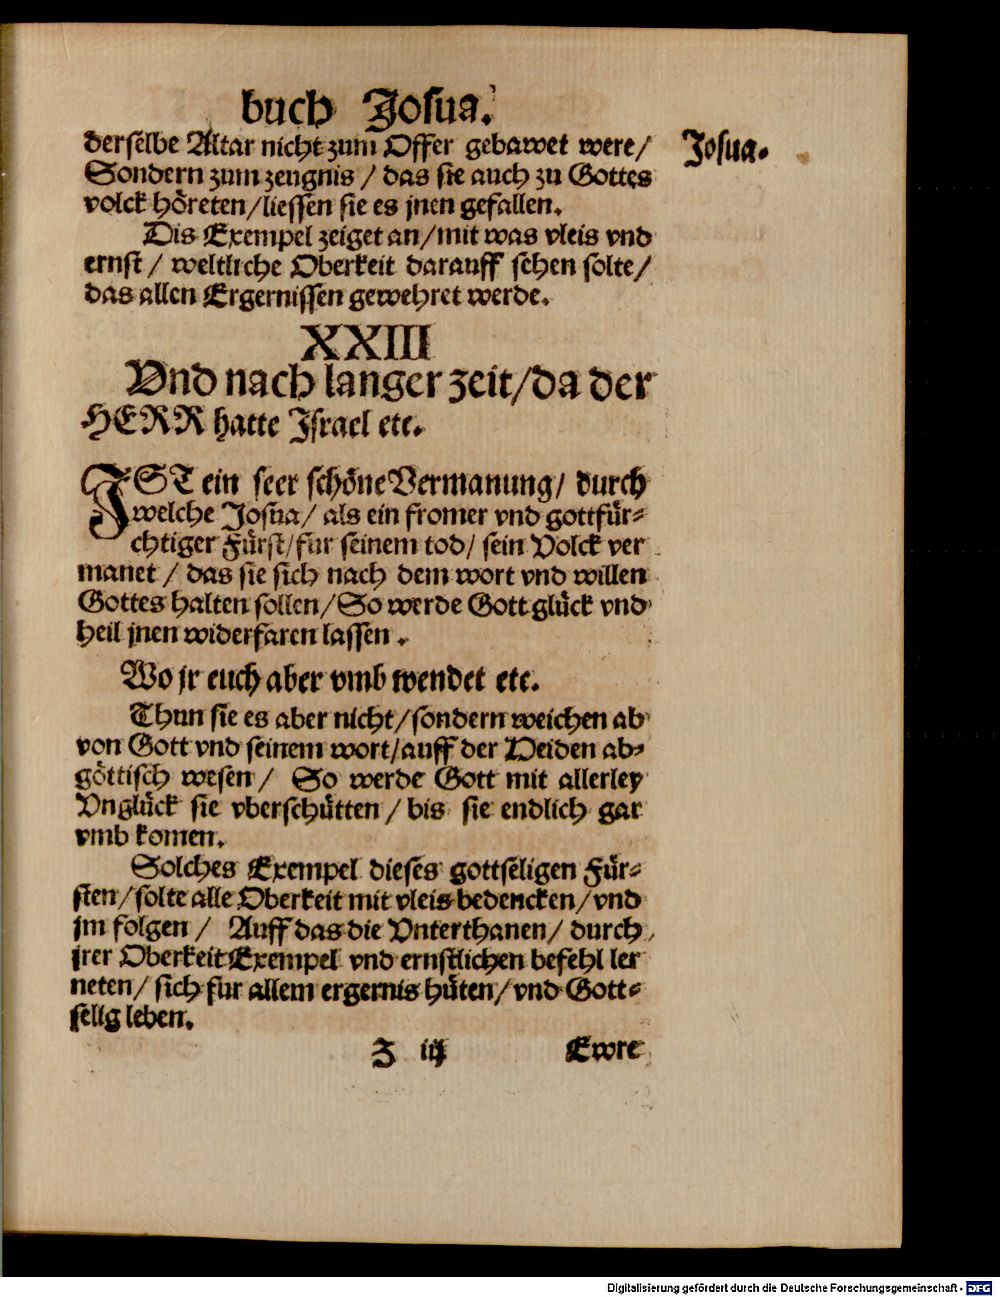 buch Josua.
derselbe Altar nicht zum Offer gebawet were/
Josua.
Sondern zum zeugnis / das sie auch zu Gottes
volck höreten/liessen sie es jnen gefallen.
Dis Exempel zeiget an/mit was vleis vnd
ernst / weltliche Oberkeit darauff sehen solte/
das allen Ergernissen gewehret werde.
XXIII
Vnd nach langer zeit/da der
HERR hatte Jsrael etc.
JST ein seer schöne Vermanung/ durch
welche Josua/ als ein fromer vnd gottfür⸗
chtiger Fürst/fur seinem tod/ sein Volck ver
manet / das sie sich nach dem wort vnd willen
Gottes halten sollen/So werde Gott glück vnd
heil jnen widerfaren lassen .
Wo jr euch aber vmb wendet etc.
Thun sie es aber nicht/sondern weichen ab
von Gott vnd seinem wort/auff der Heiden ab⸗
göttisch wesen / So werde Gott mit allerley
Vnglück sie vberschütten / bis sie endlich gar
vmb komen.
Solches Exempel dieses gottseligen Für⸗
sten/solte alle Oberkeit mit vleis bedencken/vnd
jm folgen / Auff das die Vnterthanen/ durch
jrer Oberkeit Exempel vnd ernstlichen befehl ler
neten/ sich fur allem ergernis hüten/vnd Gott⸗
selig leben.
Z iij Ewre
Digitalisierung gefördert durch die Deutsche Forschungsgemeinschaft - DFG